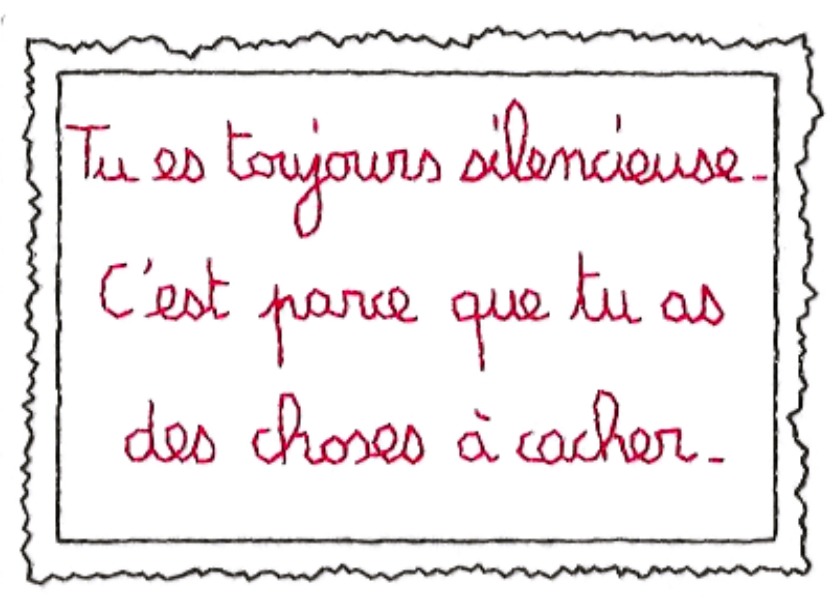 Tu es toujours silencieuse.
C'est parce que tu as
des choses à cacher.